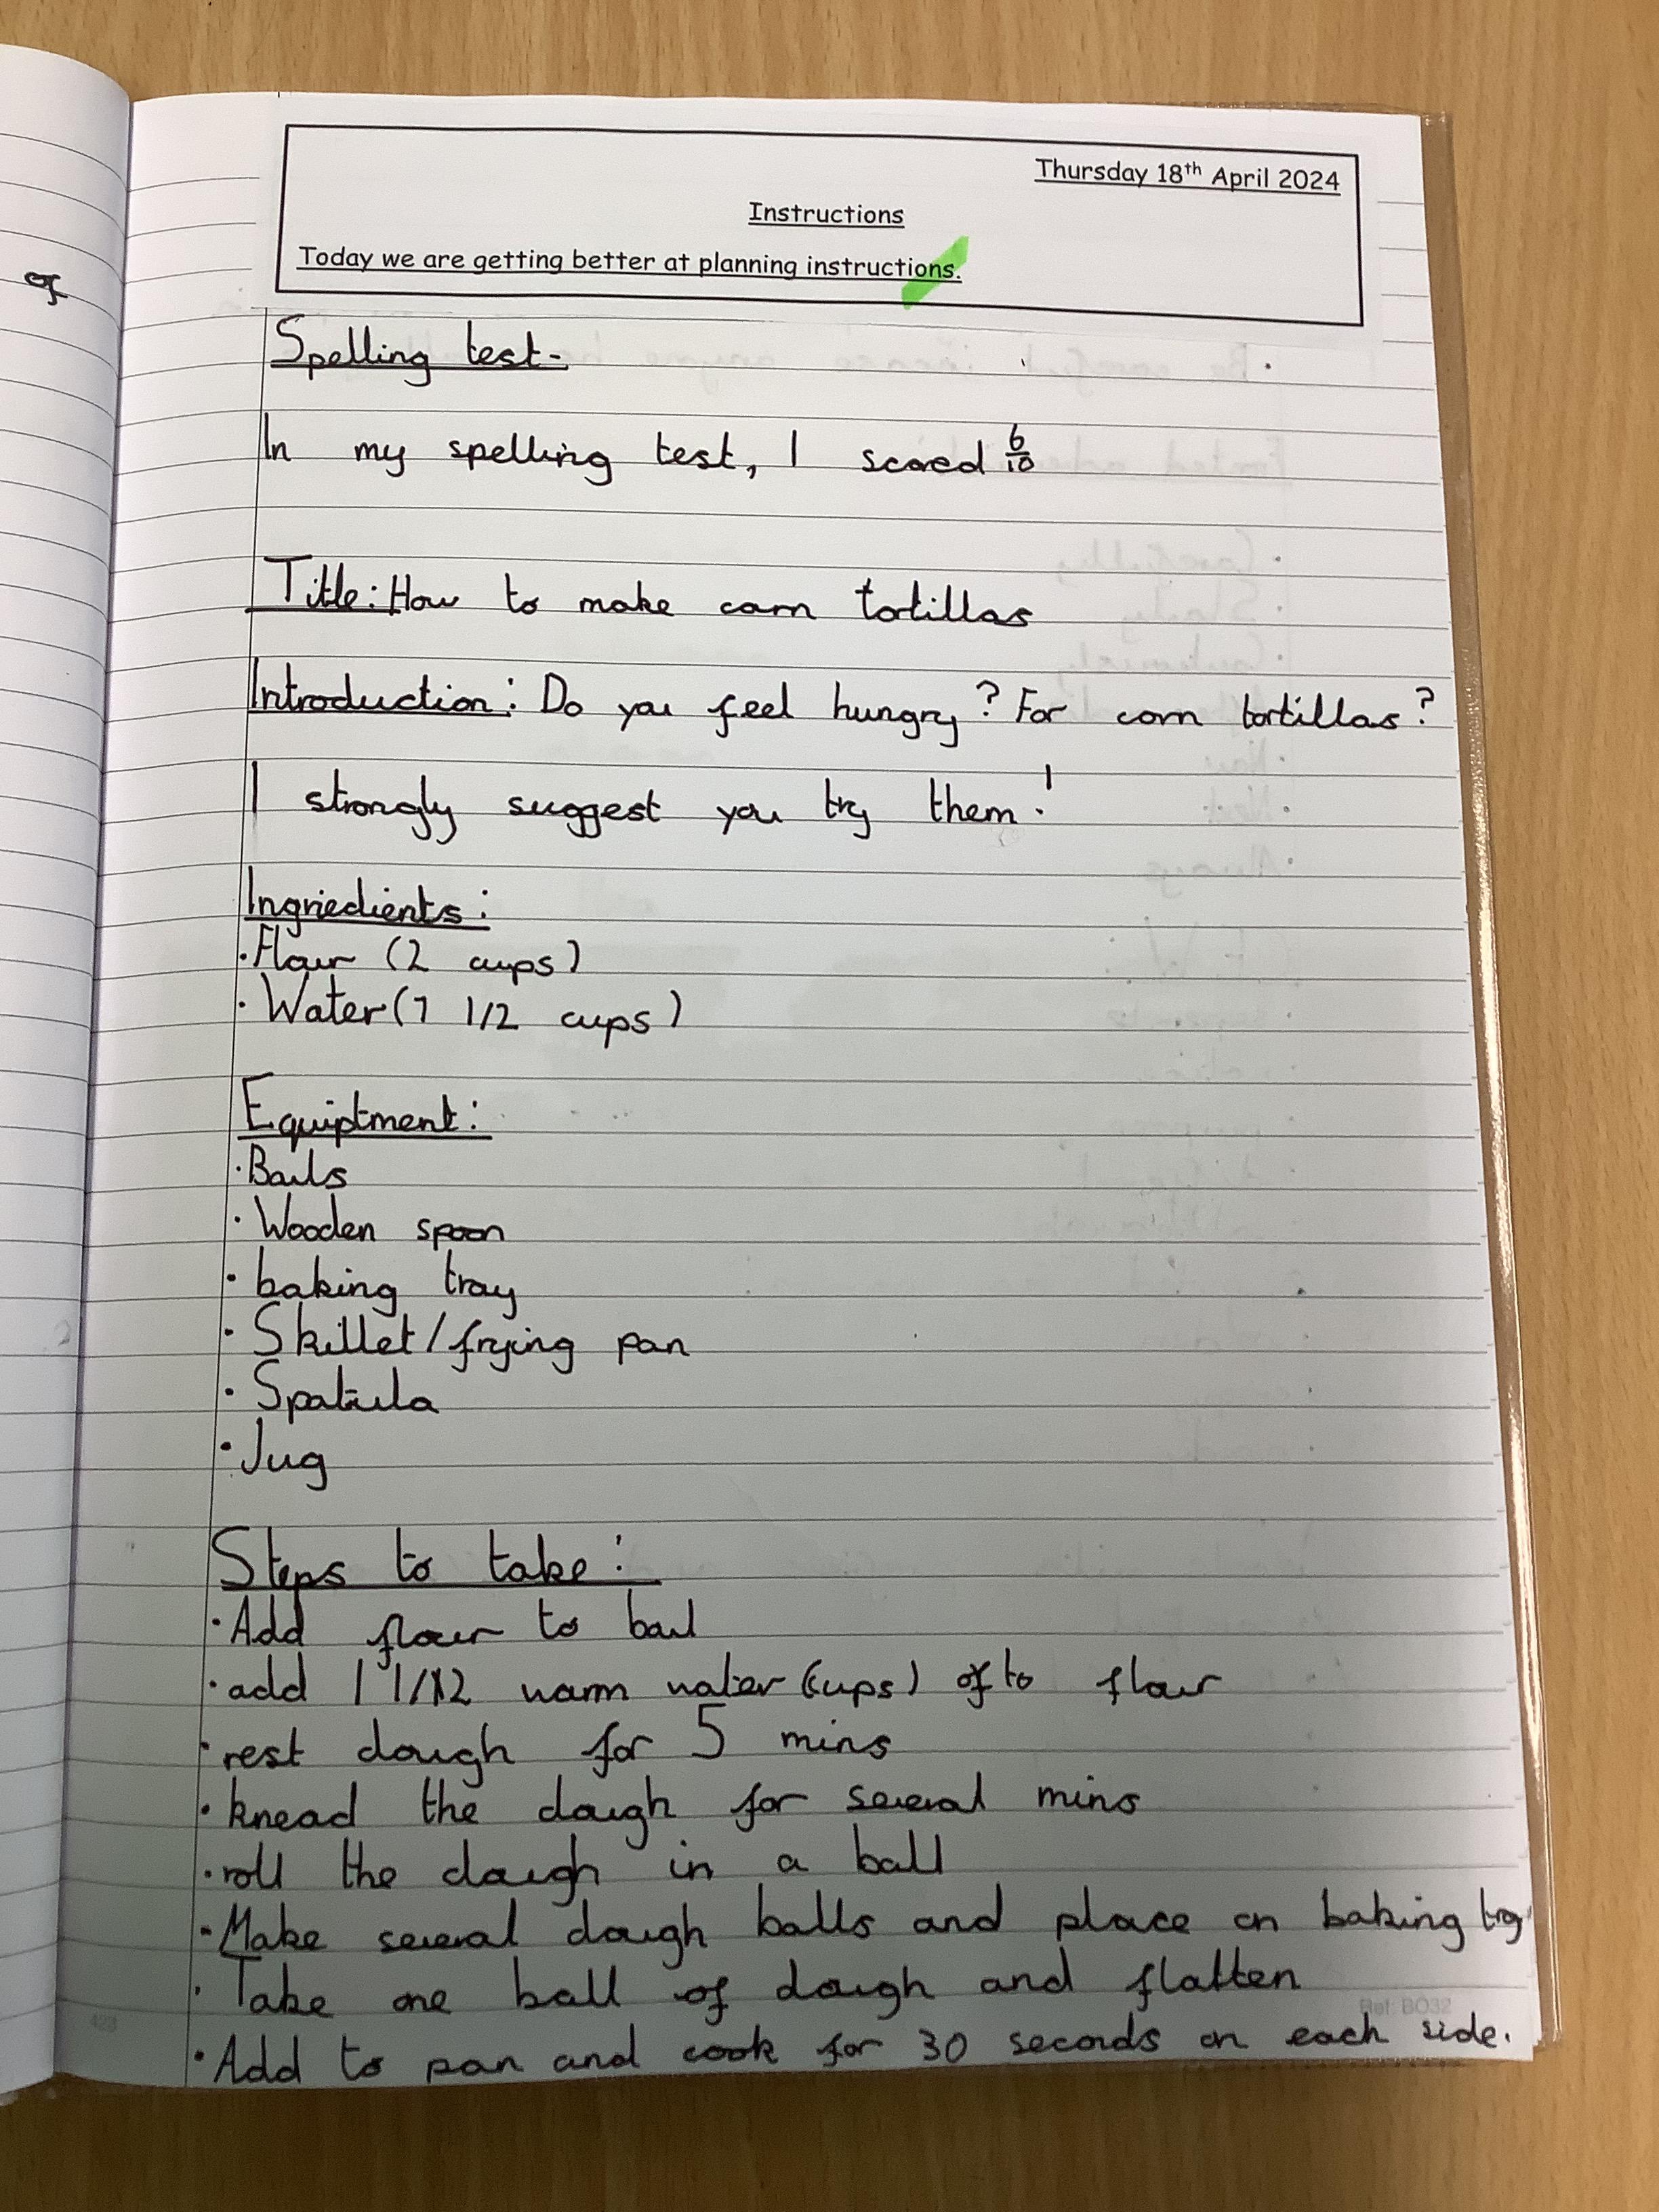 Thursday 18th April 2024
Instructions
Today we are getting better at planning instructions.
of
Spelling test-
In my spelling test, I scored 6/10
Title: How to make corn tortillas
Introduction: Do you feel hungry? For corn tortillas?
I strongly suggest you try them!
Ingriedients:
• Flour (2 cups)
• Water (1 1/2 cups)
Equiptment:
• Bowls
• Wooden spoon
• baking tray
• Skillet/frying pan
• Spatula
• Jug
Steps to take:
• Add flour to bowl
• add 1 1/2 warm water (cups) of to flour
• rest dough for 5 mins
• knead the dough for several mins
• roll the dough in a ball
• Make several dough balls and place on baking tray
• Take one ball of dough and flatten
Ref: BO32
• Add to pan and cook for 30 seconds on each side.